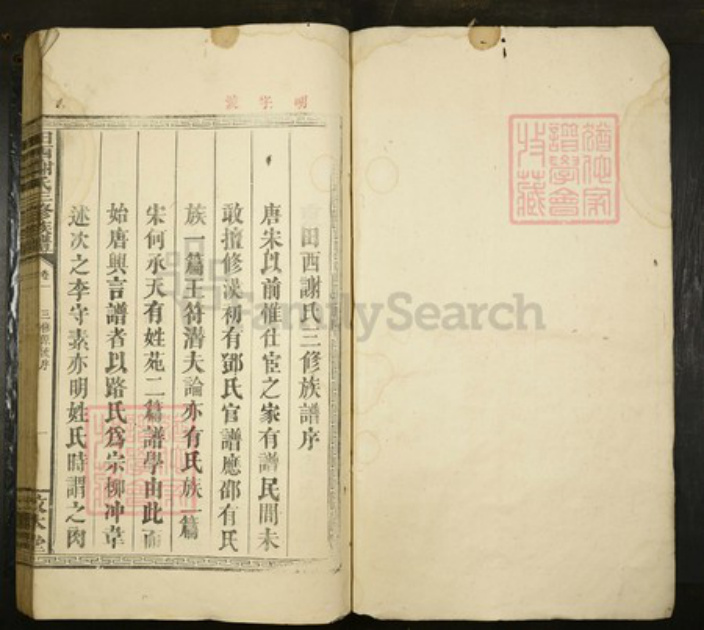 明字號
田西謝氏三修族譜序
唐宋以前惟仕宦之家有譜民間未
敢擅修漢初有鄧氏官譜應邵有氏
族一篇王符潛夫論亦有氏族一篇
宋何承天有姓苑二篇譜學由此而
始唐興言譜者以路氏為宗柳冲韋
述次之李守素亦明姓氏時謂之肉
田西謝氏三修族譜
卷一
FamilySearch
譜學會
收藏